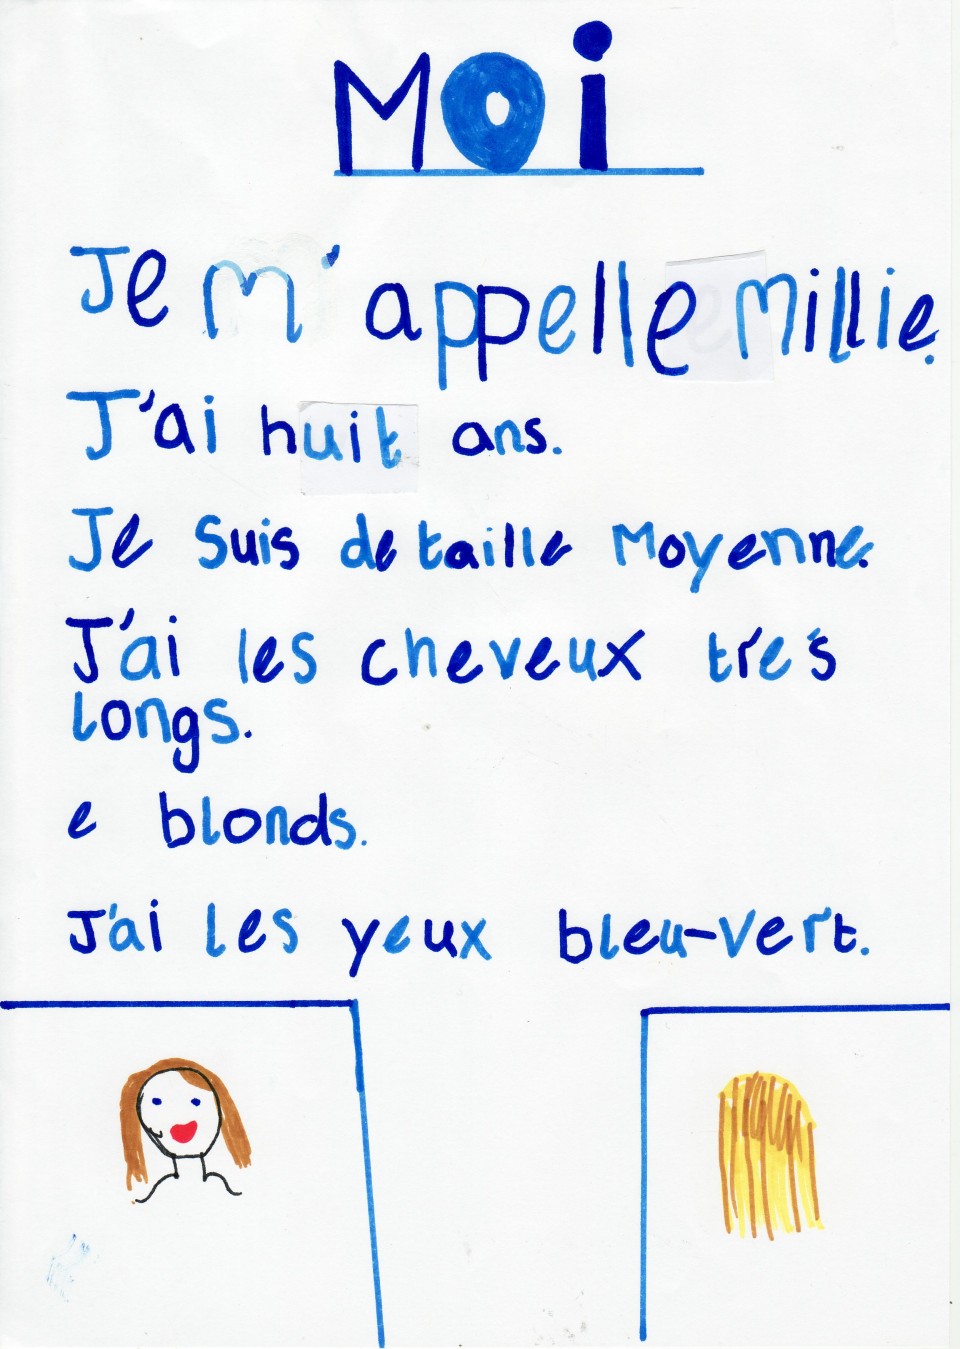 Moi
Je m'appelle Millie.
J'ai huit ans.
Je suis de taille Moyenne.
J'ai les cheveux trés
longs.
e blonds.
J'ai les yeux bleu-vert.